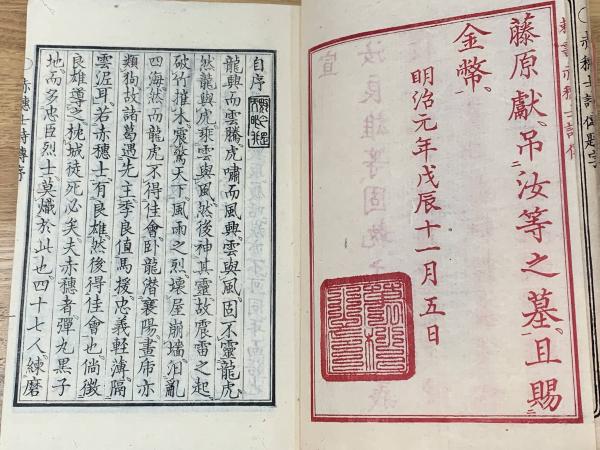 赤穗士詩傳題字
藤原獻吊汝等之墓且賜
金幣
明治元年戊辰十一月五日
自序
龍興而雲騰虎嘯而風興雲與風固不靈龍虎
然龍與虎乘雲與風然後神其靈故震雷之起
破竹摧木震驚天下風雨之烈壞屋崩墻汩亂
四海然而龍虎不得佳會臥龍潛襄陽畫虎亦
類狗故諸葛遇先主季良值馬援忠義輕薄隔
雲泥耳若赤穗士有良雄然後得佳會也倘微
良雄導之枕城徒死必矣夫赤穗者彈丸黑子
地而多忠臣烈士莫熾於此也四十七人練磨
赤穗士詩傳序